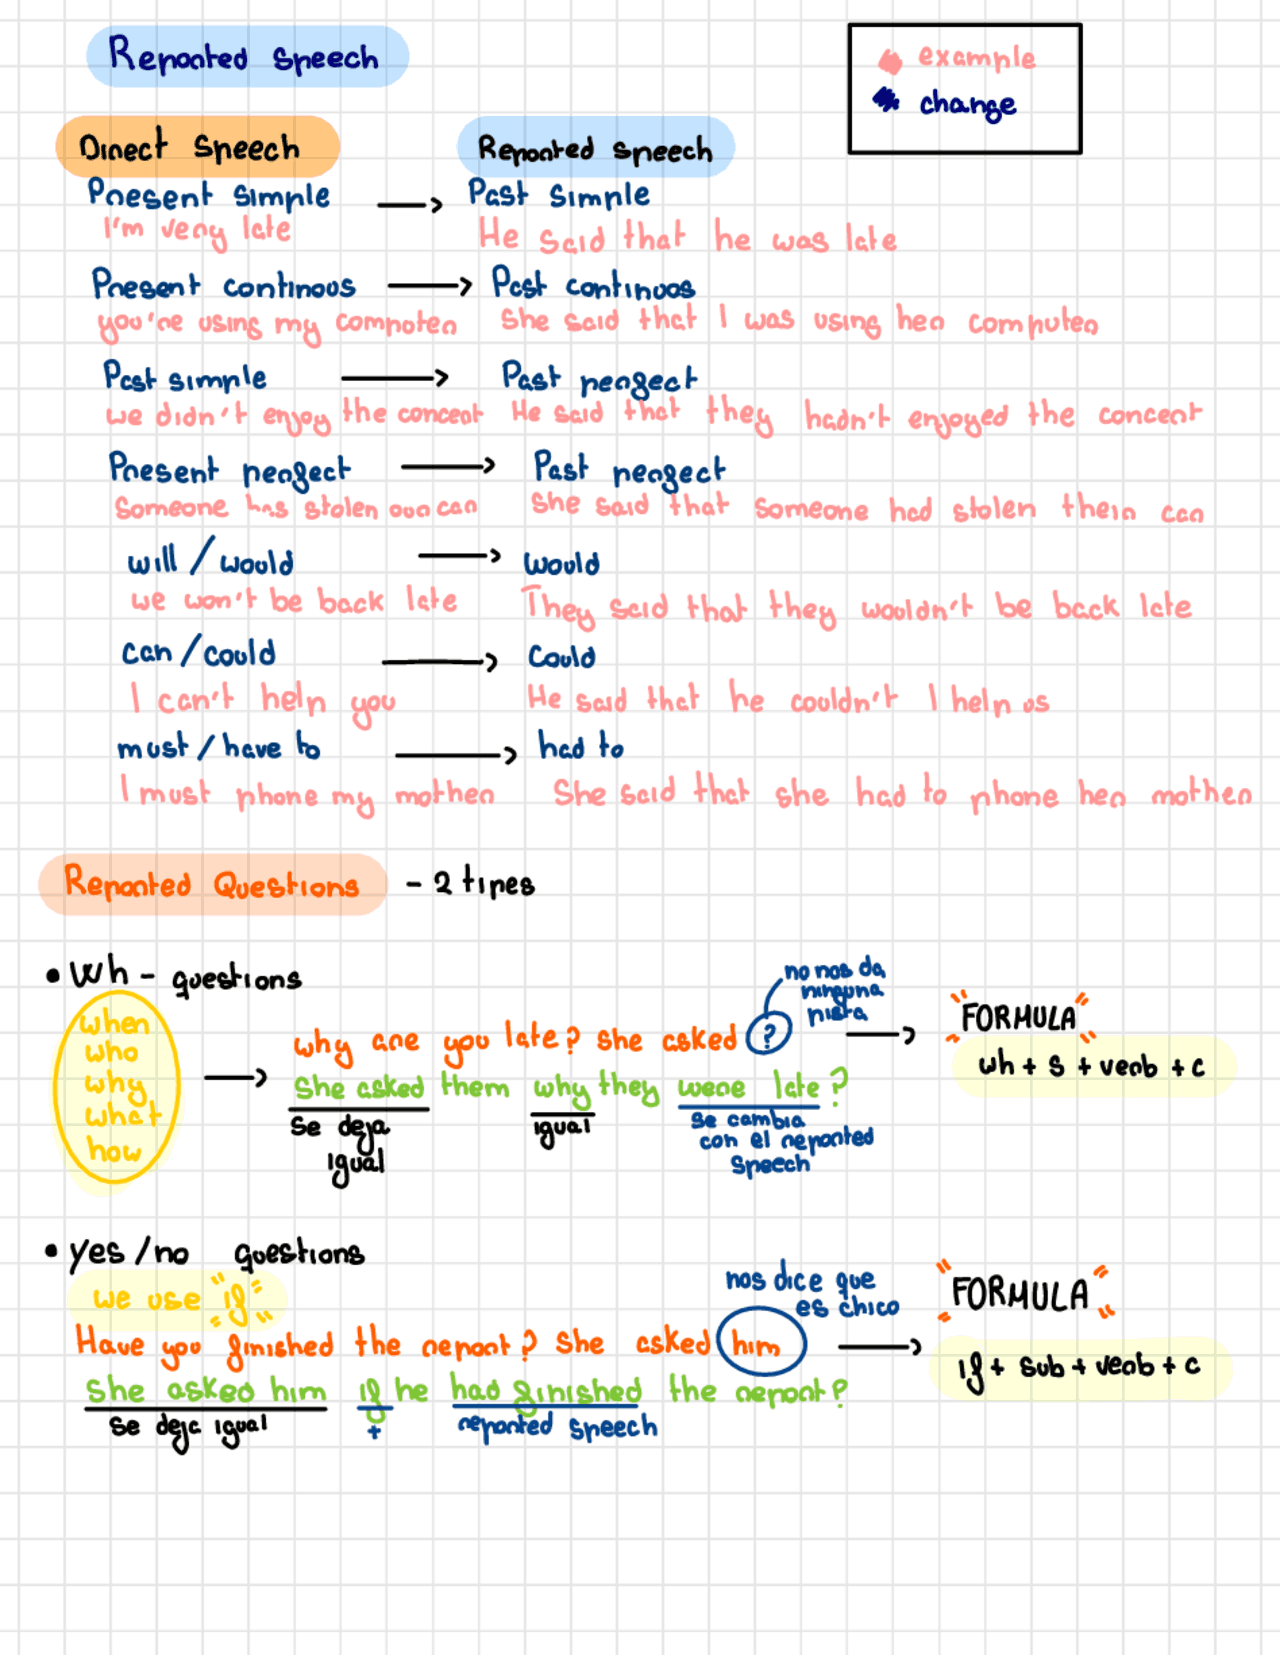 Reported speech
example
change
Direct Speech
Reported speech
Present simple → Past simple
I'm very late
He said that he was late
Present continous → Past continuos
you're using my computer
She said that I was using her computer
Past simple → Past perfect
we didn't enjoy the concert
He said that they hadn't enjoyed the concert
Present perfect → Past perfect
Someone has stolen our car
She said that someone had stolen their car
will / would → would
we won't be back late
They said that they wouldn't be back late
can / could → Could
I can't help you
He said that he couldn't I help us
must / have to → had to
I must phone my mother
She said that she had to phone her mother
Reported Questions - 2 tipes
• Wh - questions
when
who
why
what
how
no nos da
ninguna
pista
why are you late? she asked ?
She asked them why they were late?
Se deja
igual
igual
se cambia
con el reported
speech
"FORMULA"
wh + s + verb + c
• yes / no questions
we use "if"
nos dice que
es chico
Have you finished the report? She asked him
She asked him if he had finished the report?
se deja igual
+
reported speech
"FORMULA"
if + sub + verb + c